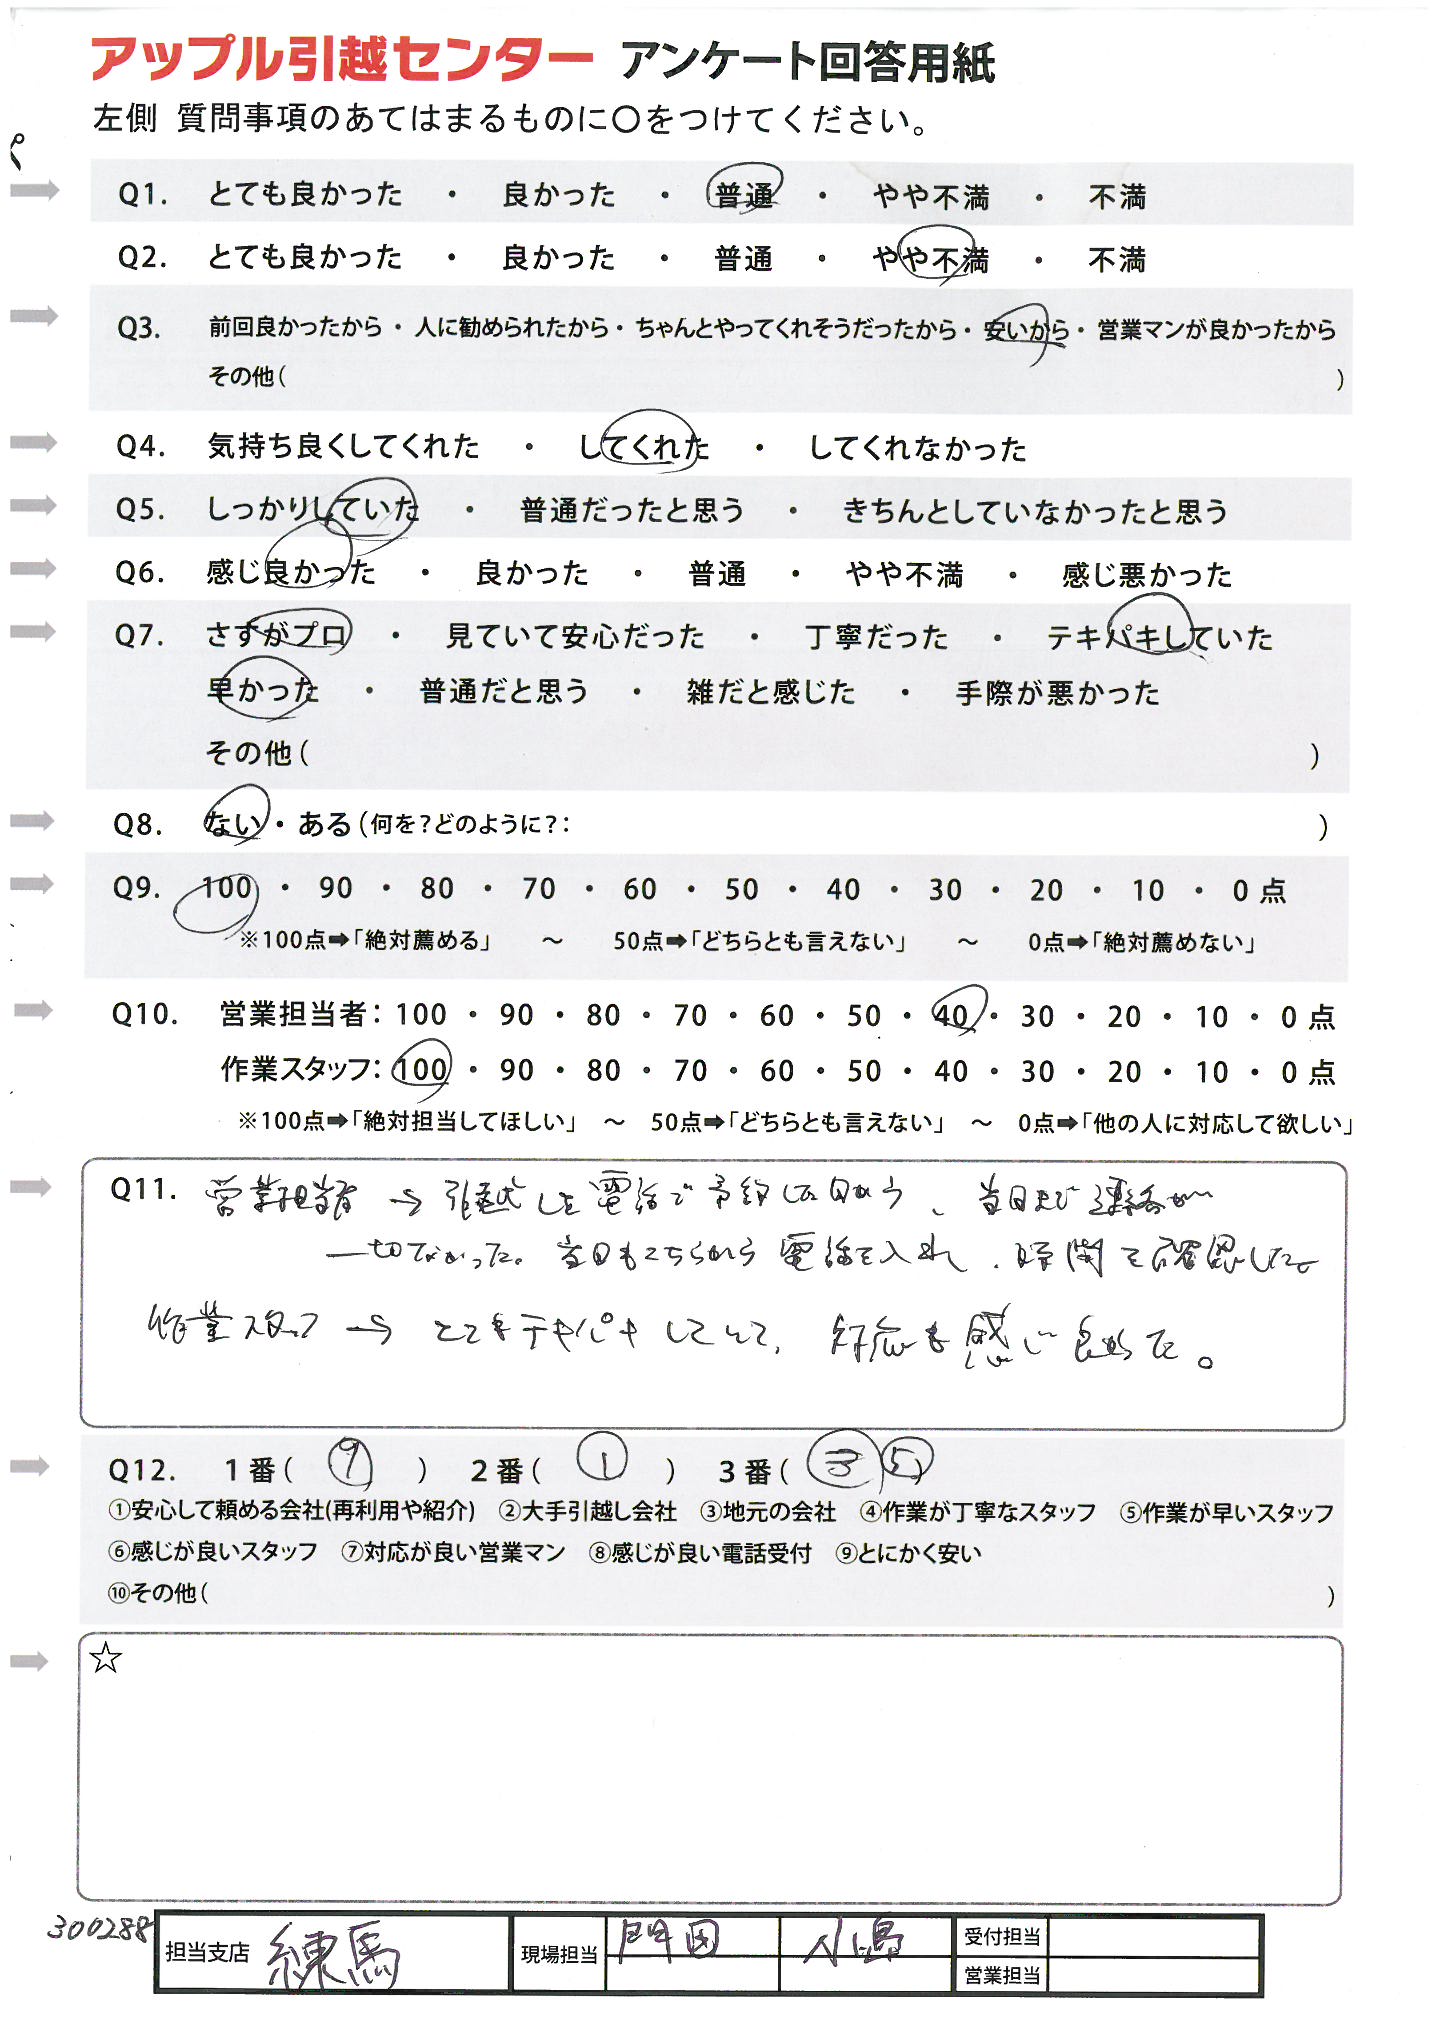 アップル引越センター アンケート回答用紙
左側 質問事項のあてはまるものに〇をつけてください。
Q1. とても良かった ・ 良かった ・ 普通 ・ やや不満 ・ 不満
Q2. とても良かった ・ 良かった ・ 普通 ・ やや不満 ・ 不満
Q3. 前回良かったから・人に勧められたから・ちゃんとやってくれそうだったから・安いから・営業マンが良かったから
その他( )
Q4. 気持ち良くしてくれた ・ してくれた ・ してくれなかった
Q5. しっかりしていた ・ 普通だったと思う ・ きちんとしていなかったと思う
Q6. 感じ良かった ・ 良かった ・ 普通 ・ やや不満 ・ 感じ悪かった
Q7. さすがプロ ・ 見ていて安心だった ・ 丁寧だった ・ テキパキしていた
早かった ・ 普通だと思う ・ 雑だと感じた ・ 手際が悪かった
その他( )
Q8. ない・ある(何を?どのように?: )
Q9. 100 ・ 90 ・ 80 ・ 70 ・ 60 ・ 50 ・ 40 ・ 30 ・ 20 ・ 10 ・ 0 点
※100点➡「絶対薦める」 ～ 50点➡「どちらとも言えない」 ～ 0点➡「絶対薦めない」
Q10. 営業担当者: 100 ・ 90 ・ 80 ・ 70 ・ 60 ・ 50 ・ 40 ・ 30 ・ 20 ・ 10 ・ 0 点
作業スタッフ: 100 ・ 90 ・ 80 ・ 70 ・ 60 ・ 50 ・ 40 ・ 30 ・ 20 ・ 10 ・ 0 点
※100点➡「絶対担当してほしい」 ～ 50点➡「どちらとも言えない」 ～ 0点➡「他の人に対応して欲しい」
Q11. 営業担当者 → 引越しを電話で予約した日から、当日まで連絡が
一切なかった。当日もこちらから電話を入れ、時間を確認した。
作業スタッフ → とてもテキパキしていて、対応も感じ良かった。
Q12. 1番( ⑨ ) 2番( ① ) 3番( ③ ⑤ )
①安心して頼める会社(再利用や紹介) ②大手引越し会社 ③地元の会社 ④作業が丁寧なスタッフ ⑤作業が早いスタッフ
⑥感じが良いスタッフ ⑦対応が良い営業マン ⑧感じが良い電話受付 ⑨とにかく安い
⑩その他( )
☆
300288
担当支店 練馬 現場担当 門田 小島 受付担当
営業担当